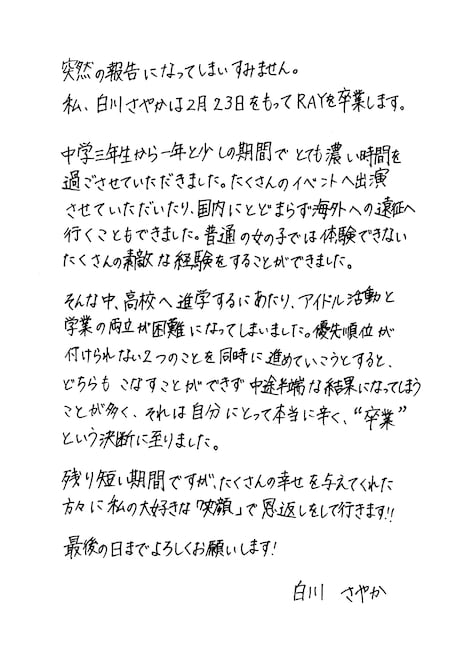 突然の報告になってしまいすみません。
私、白川さやかは2月23日をもってRAYを卒業します。
中学三年生から一年と少しの期間でとても濃い時間を
過ごさせていただきました。たくさんのイベントへ出演
させていただいたり、国内にとどまらず海外への遠征へ
行くこともできました。普通の女の子では体験できない
たくさんの素敵な経験をすることができました。
そんな中、高校へ進学するにあたり、アイドル活動と
学業の両立が困難になってしまいました。優先順位が
付けられない2つのことを同時に進めていこうとすると、
どちらもこなすことができず中途半端な結果になってしまう
ことが多く、それは自分にとって本当に辛く、“卒業”
という決断に至りました。
残り短い期間ですが、たくさんの幸せを与えてくれた
方々に私の大好きな「笑顔」で恩返しをして行きます!!
最後の日までよろしくお願いします!
白川 さやか